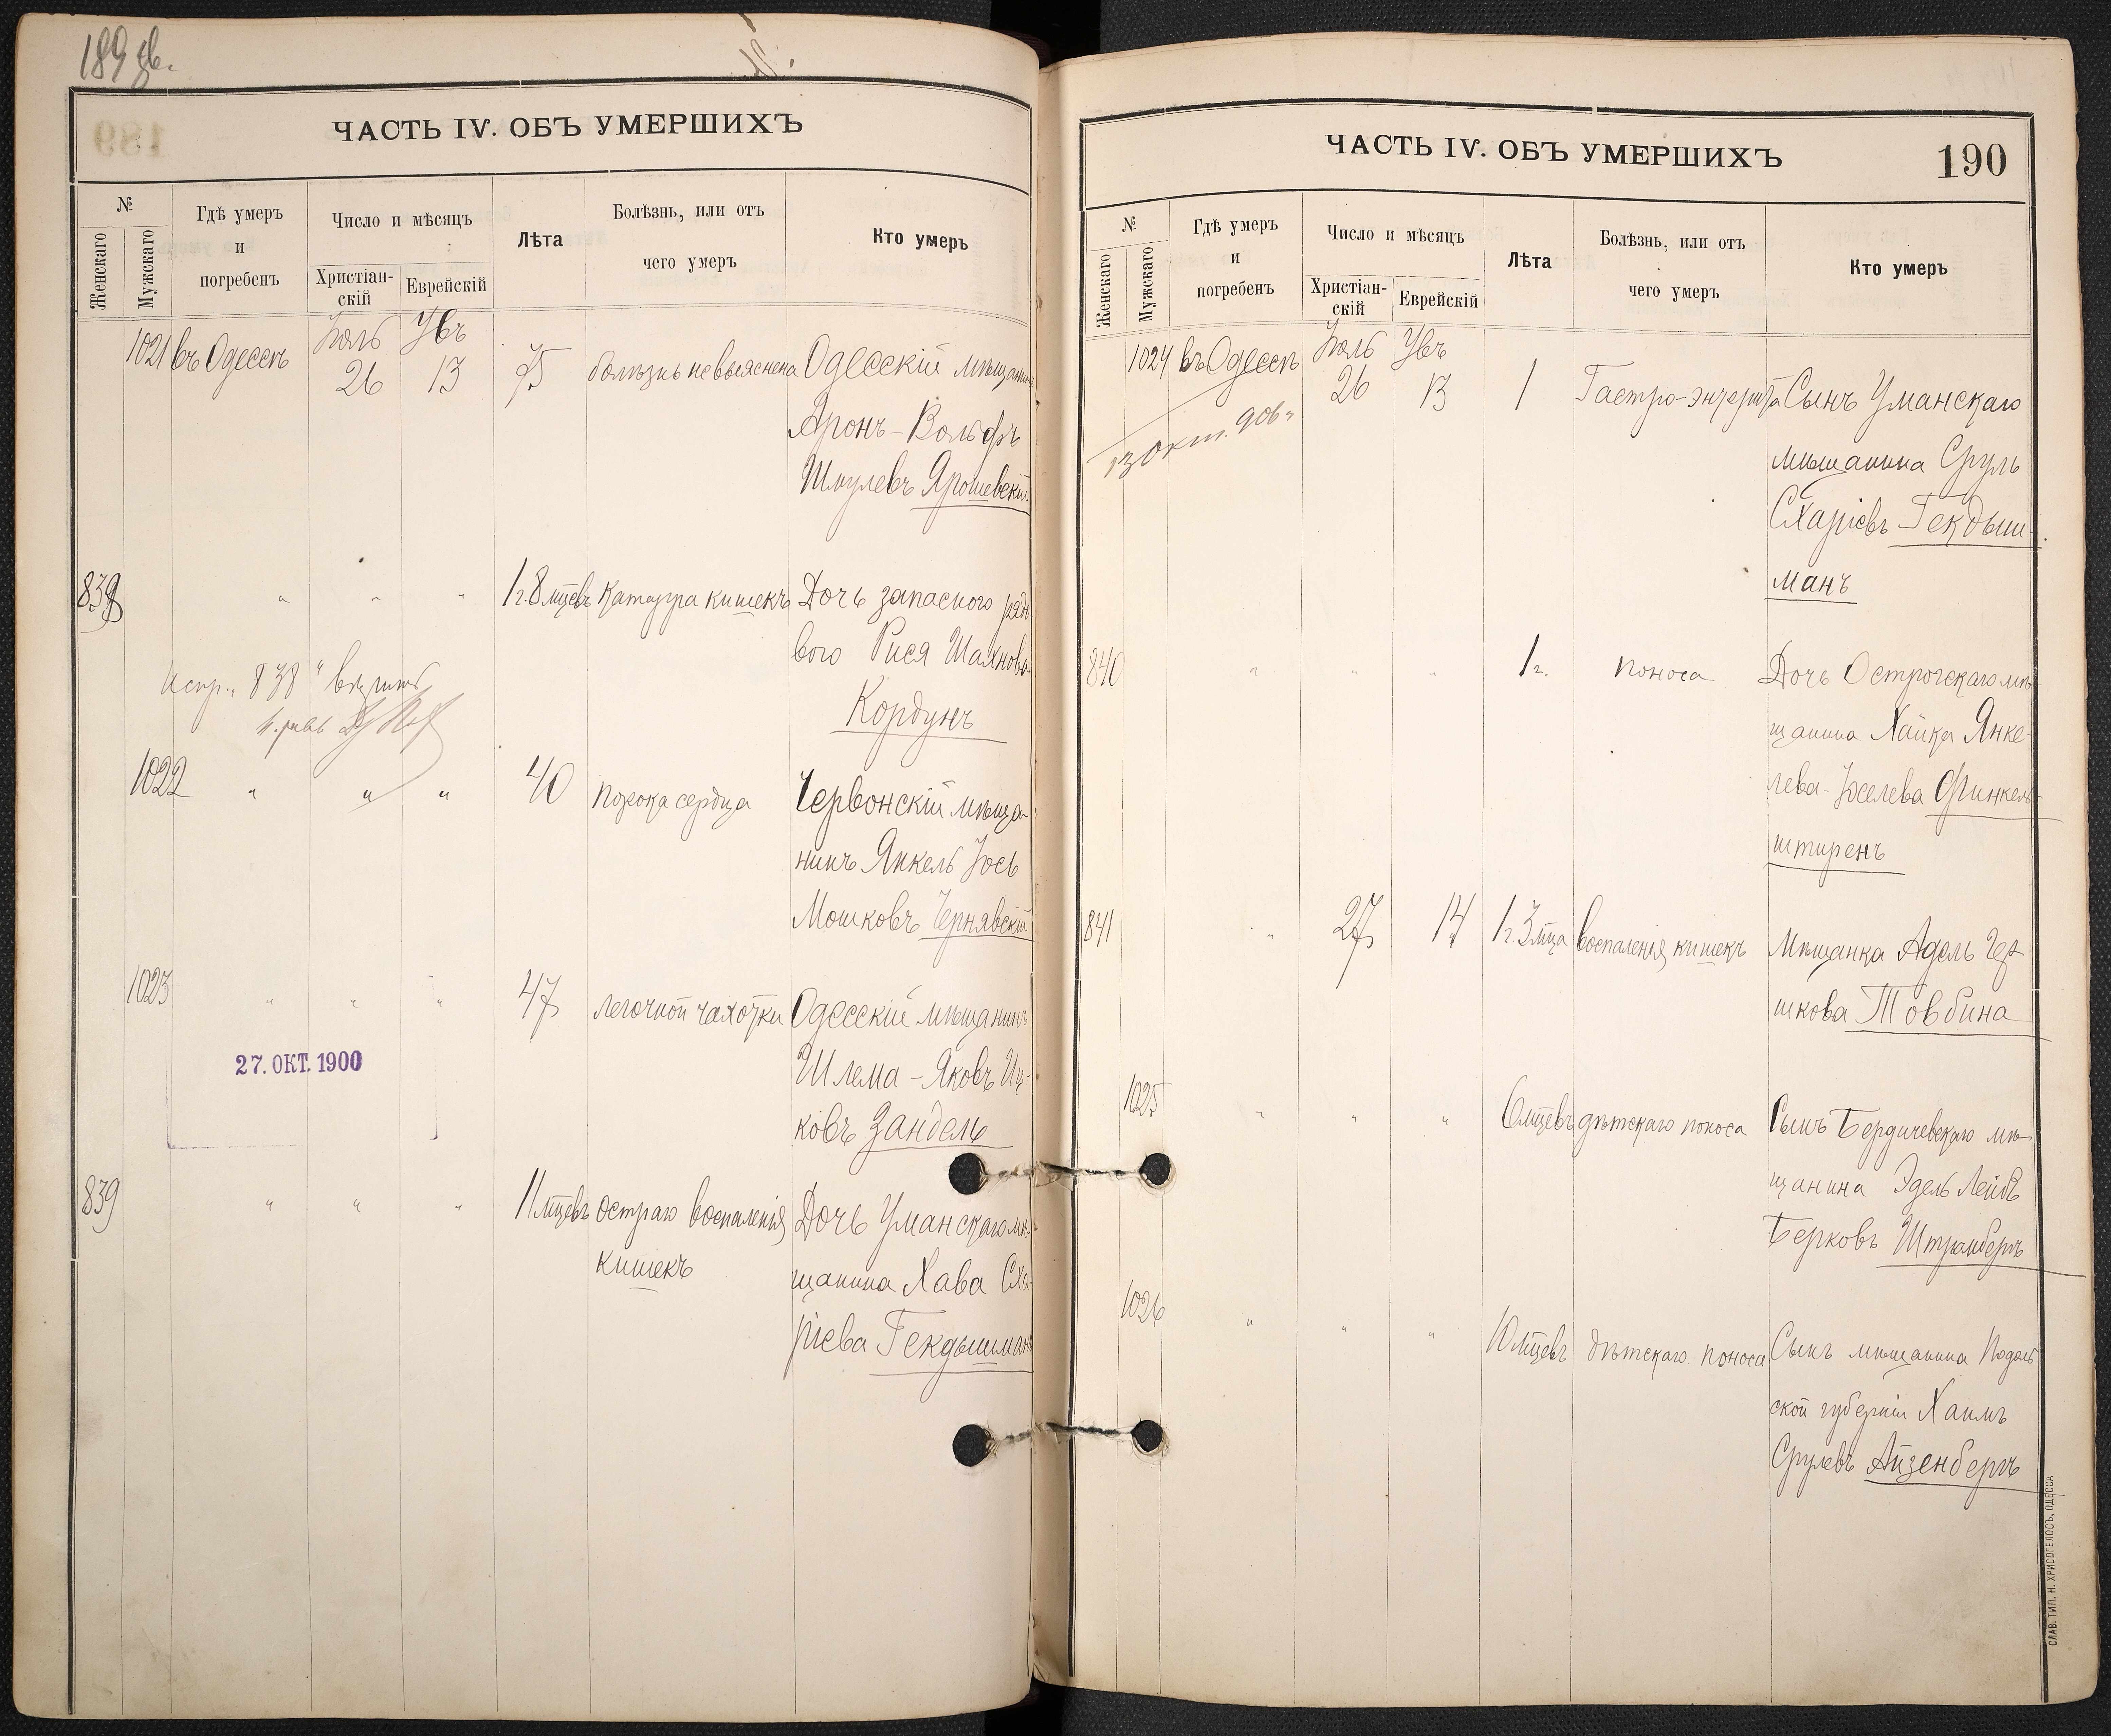 189 об.
ЧАСТЬ IV. ОБЪ УМЕРШИХЪ
№
Женскаго
Мужскаго
Гдѣ умеръ
и
погребенъ
Число и мѣсяцъ
Христіан-
скій
Еврейскій
Лѣта
Болѣзнь, или отъ
чего умеръ
Кто умеръ
Іюль Увъ
1021 въ Одессѣ 26 13 75 болѣзнь не выяснена Одесскій мѣщанинъ
Аронъ-Вольфъ
Шмулевъ Ярошевскій
839 " " " 1 г. 8 мцевъ Катарра кишекъ Дочь запасного рядо
вого Рися Шахнова
Кордунъ
Испр. "838" вѣрить
1022 " " " 40 порока сердца Червонскій мѣща-
нинъ Янкель Іось
Мошковъ Чернявскій
1023 " " " 47 легочной чахотки Одесскій мѣщанинъ
Шлема-Яковъ Иц-
ковъ Зандель
27. ОКТ. 1900
839 " " " 11 мцевъ острого воспаленія Дочь Уманскаго мѣ-
кишекъ
щанина Хава Сха-
ріева Гекдышманъ
ЧАСТЬ IV. ОБЪ УМЕРШИХЪ
190
№
Женскаго
Мужскаго
Гдѣ умеръ
и
погребенъ
Число и мѣсяцъ
Христіан-
скій
Еврейскій
Лѣта
Болѣзнь, или отъ
чего умеръ
Кто умеръ
Іюль Увъ
1024 въ Одессѣ 26 13 1 Гастро-энтерита Сынъ Уманскаго
13 Окт. 906 г
мѣщанина Сруль
Схаріевъ Гекдыш-
манъ
840 " " " 1 г. поноса Дочь Острогскаго мѣ-
щанина Хайка Янке-
лева-Іоселева Финкель-
штиренъ
841 " 27 14 1 г. 3 мца воспаленія кишекъ Мѣщанка Адель Гер
шкова Товбина
1025 " " " 6 мцевъ дѣтскаго поноса Сынъ Бердичевскаго мѣ-
щанина Эдель Лейбъ
Берковъ Штрамбергъ
1026 " " " 10 мцевъ дѣтскаго поноса Сынъ мѣщанина Подоль
ской губерніи Хаимъ
Срулевъ Айзенбергъ
СЛАВ. ТИП. Н. ХРИСОГЕЛОСЪ, ОДЕССА